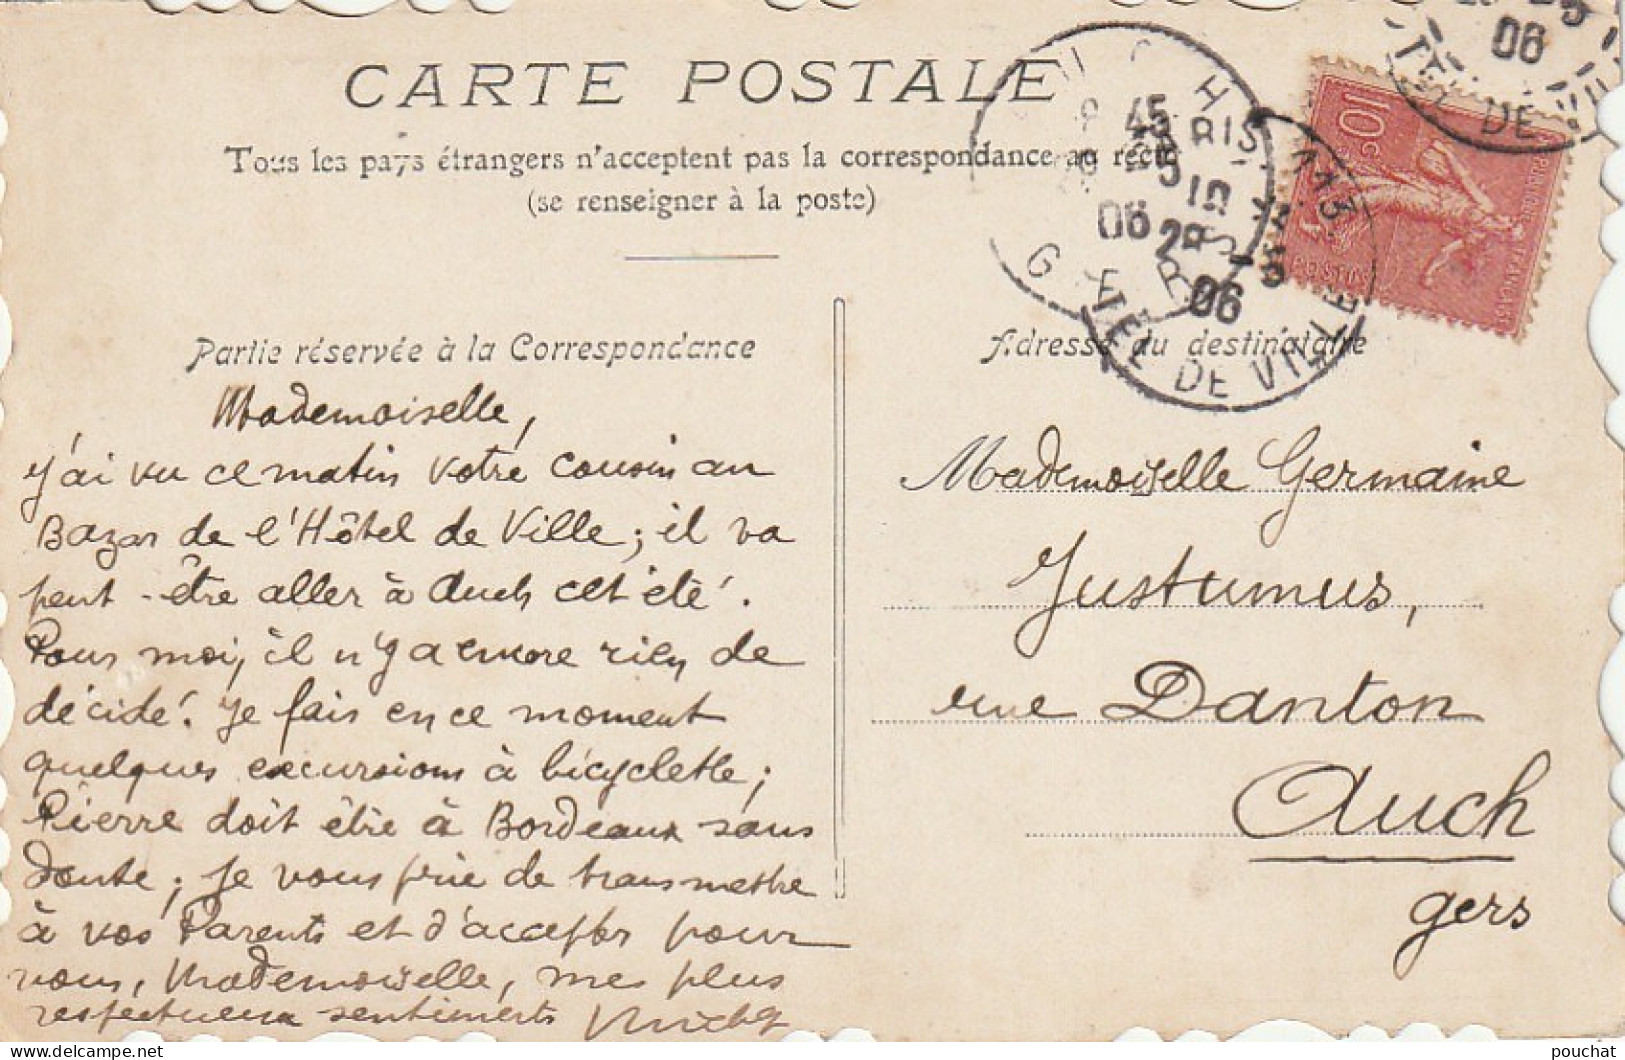 CARTE POSTALE
Tous les pays étrangers n'acceptent pas la correspondance au recto
(se renseigner à la poste)
Partie réservée à la Correspondance
Adresse du destinataire
Mademoiselle,
j'ai vu ce matin votre cousin au
Bazar de l'Hôtel de Ville; il va
peut-être aller à Auch cet été.
Pour moi, il n'y a encore rien de
décidé. Je fais en ce moment
quelques excursions à bicyclette;
Pierre doit être à Bordeaux sans
doute; je vous prie de transmettre
à vos Parents et d'accepter pour
vous, Mademoiselle, mes plus
respectueux sentiments
Mademoiselle Germaine
Justumus,
rue Danton
Auch
Gers
10c
06
DE
AUCH
GERS
45
06
PARIS
113
28
06
HOTEL DE VILLE
pouchat